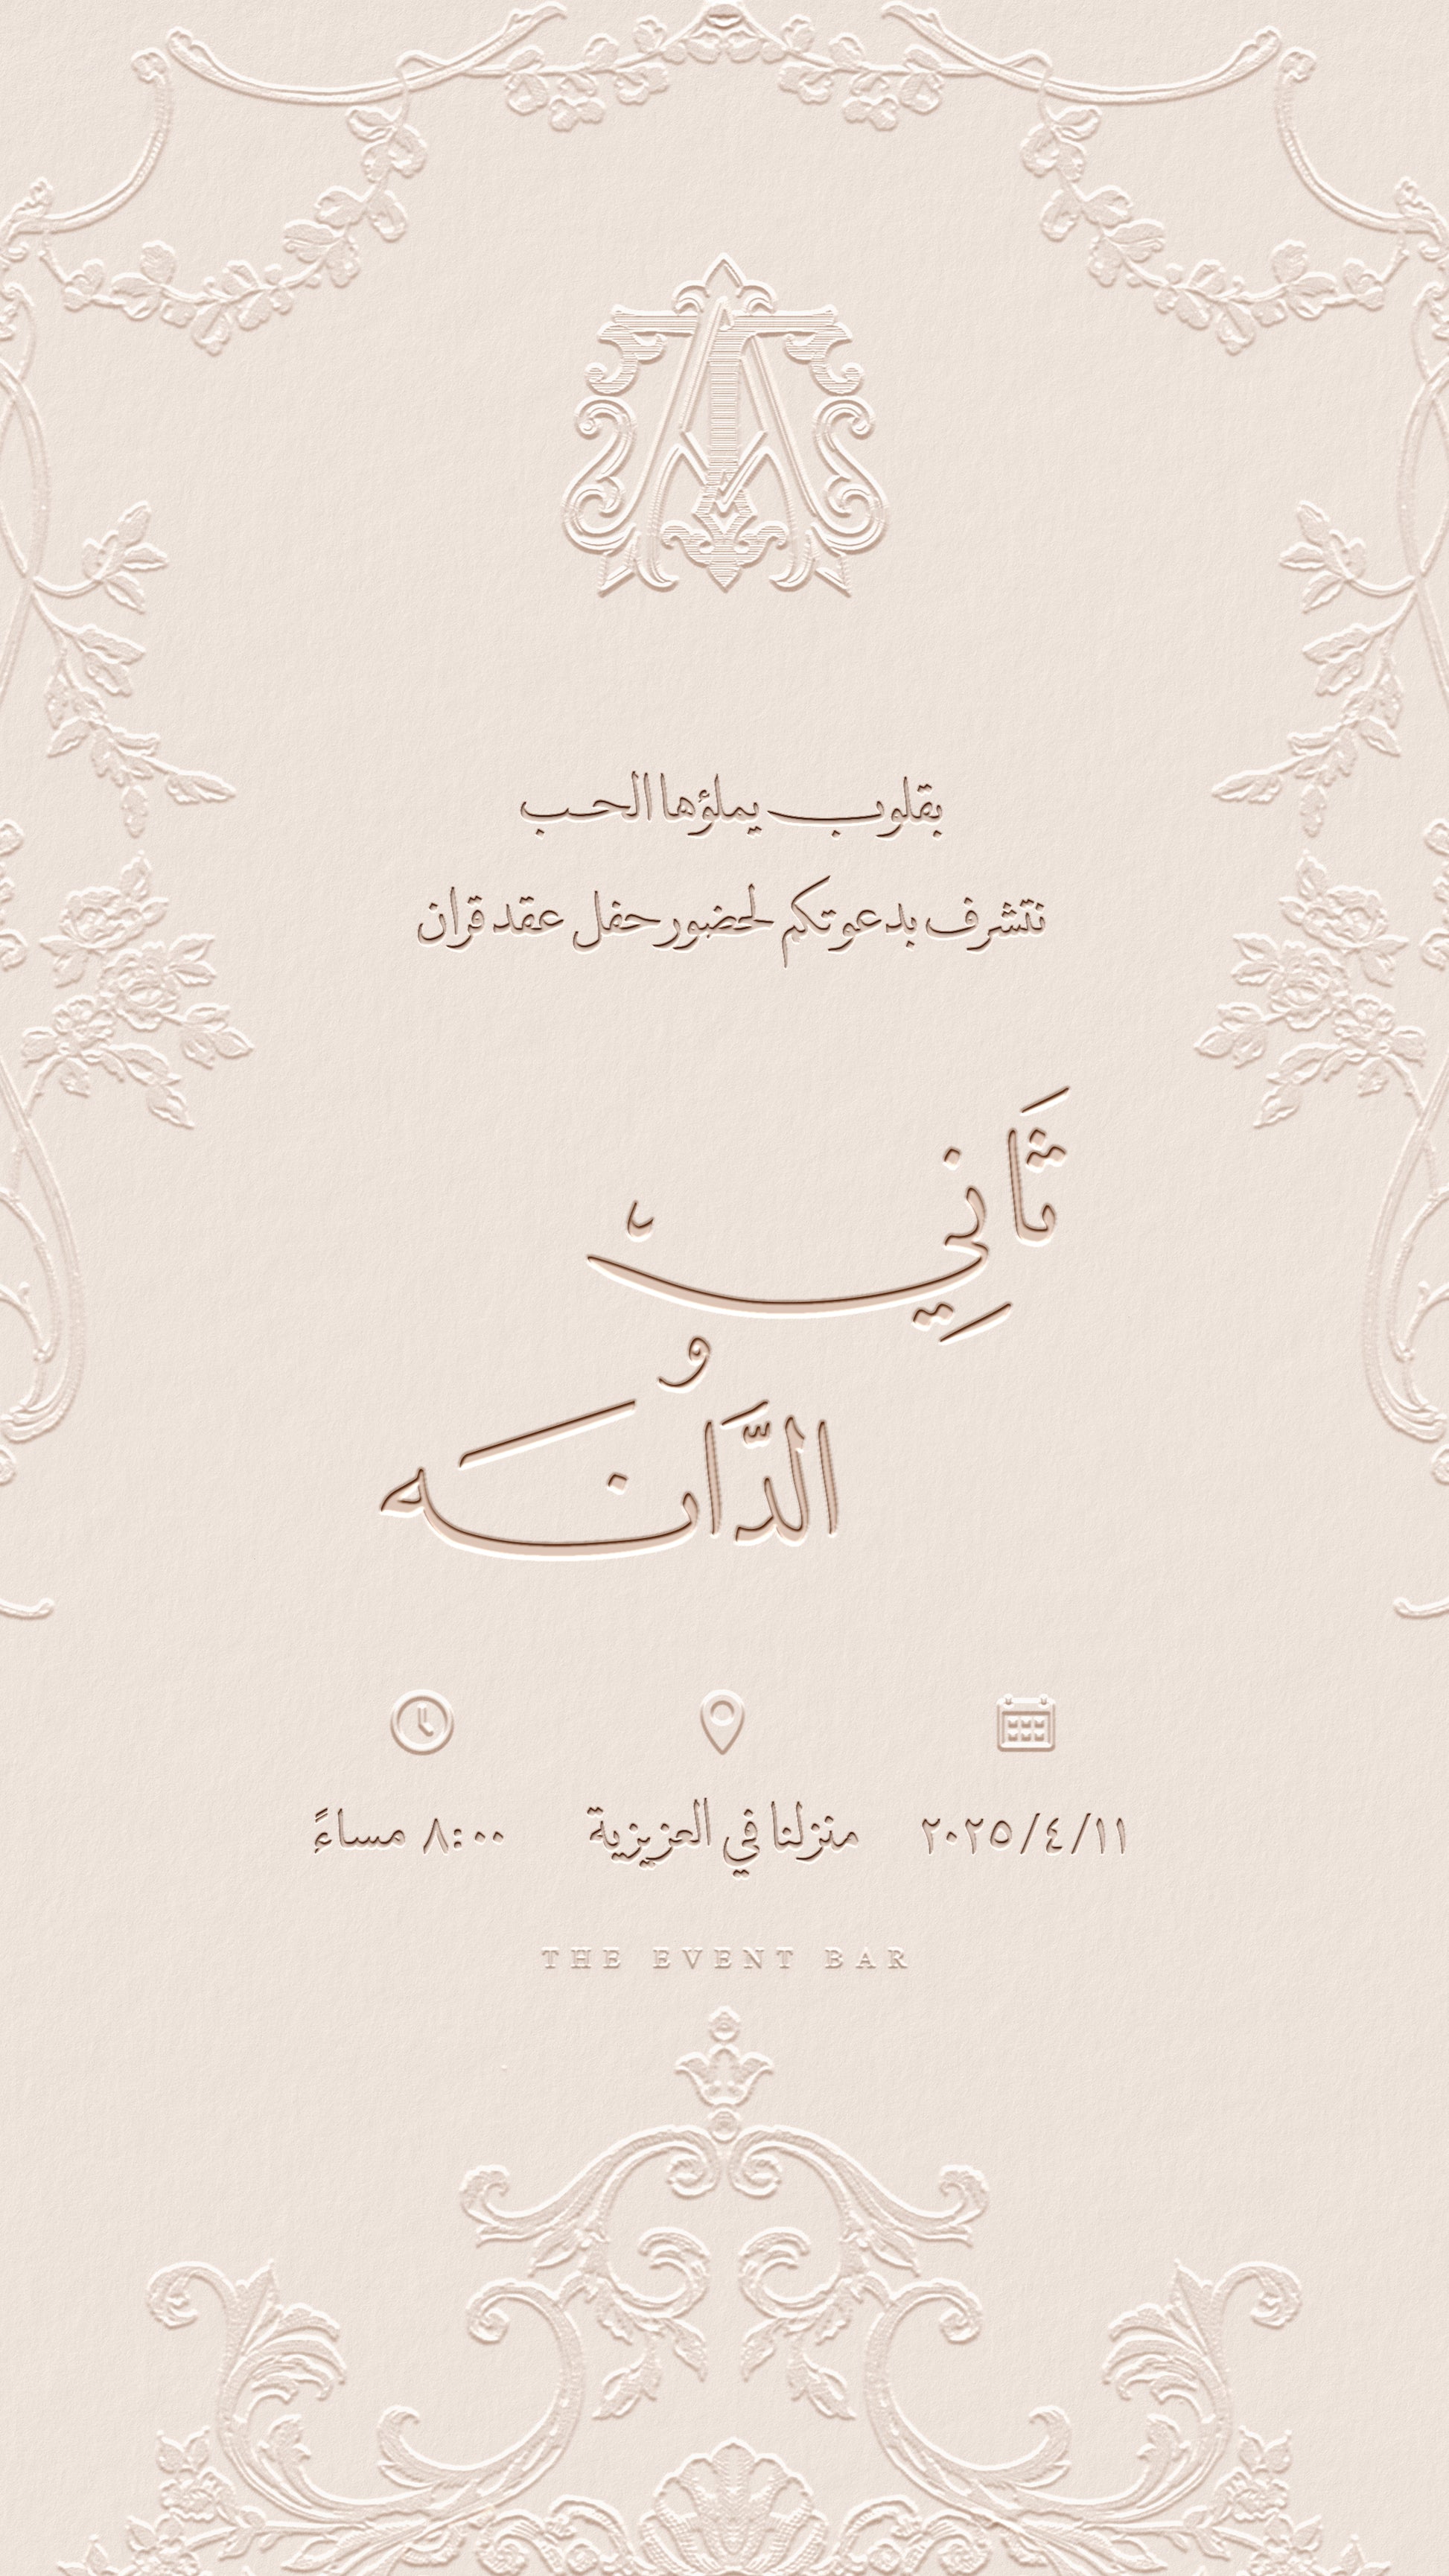 بقلوب يملؤها الحب
نتشرف بدعوتكم لحضور حفل عقد قران
ثَانِي
و
الدَّانَه
٢٠٢٥/٤/١١
منزلنا في العزيزية
٨:٠٠ مساءً
THE EVENT BAR